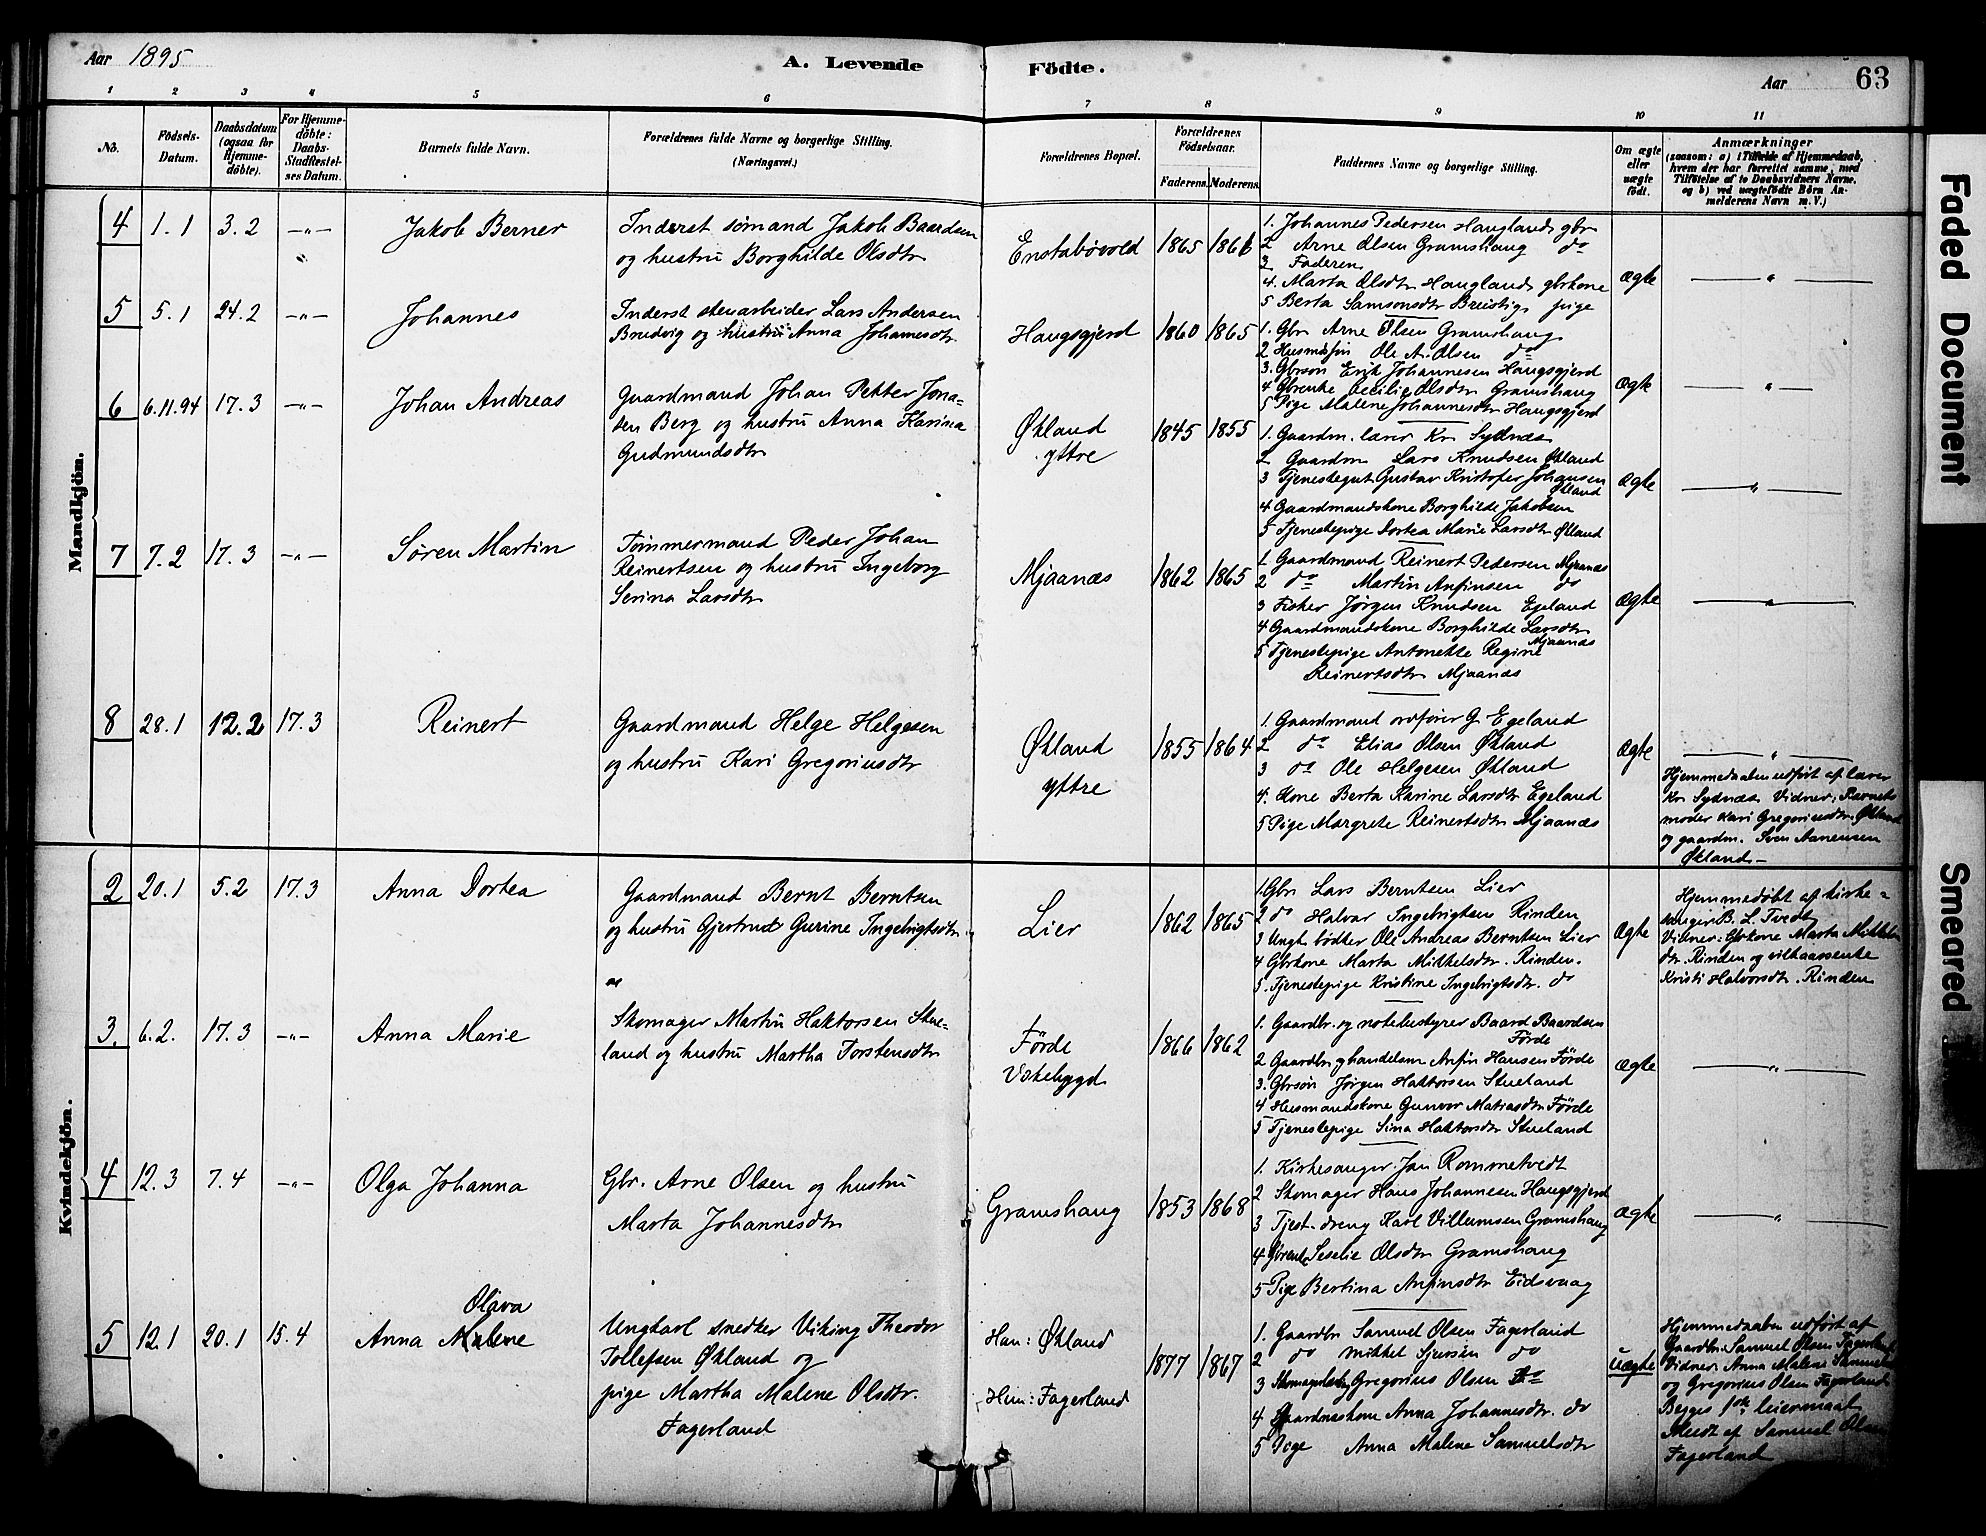 Aar 1895
A. Levende Födte.
Aar
63
1 2 3 4 5 6 7 8 9 10 11
No.
Födsels-
Datum.
Daabsdatum
(ogsaa for
Hjemme-
döbte).
For Hjemme-
döbte:
Daabs-
Stadfæstel-
ses Datum.
Barnets fulde Navn.
Forældrenes fulde Navne og borgerlige Stilling.
(Næringsvei.)
Forældrenes Bopæl.
Forældrenes
Födselsaar.
Faderens. Moderens.
Faddernes Navne og borgerlige Stilling.
Om ægte
eller
uægte
født.
Anmærkninger
(saasom: a) i Tilfælde af Hjemmedaab,
hvem der har forrettet samme, med
Tilföielse af to Daabsvidners Navne,
og b) ved uægtefödte Börn An-
melderens Navn m. V.)
Mandkjön.
4 1.1 3.2 —„—
Jakob Berner
Inderst sømand Jakob Baardsen
og hustru Borghilde Olsdtr
Enstabövold
1865 1866
1. Johannes Pedersen Haugland gbr
2 Arne Olsen Gramshaug do
3 Faderen
4. Marta Olsdtr Haugland gbrkone
5 Berta Samsonsdtr Breistig pige
ægte
—„—
5 5.1 24.2 —„—
Johannes
Inderst stenarbeider Lars Andersen
Brudvig og hustru Anna Johannesdtr
Haugsgjerd
1860 1865
1. Gbr Arne Olsen Gramshaug
2 Husm Ole A. Olsen do
3. Gbrsön Erik Johannesen Haugsgjerd
4 Gbrenke Cecilie Olsdtr Gramshaug
5 Pige Malene Johannesdtr Haugsgjerd
ægte
—„—
6 6.11.94 17.3 —„—
Johan Andreas
Gaardmand Johan Petter Jona-
sen Berg og hustru Anna Karina
Gudmundsdtr
Økland
yttre
1845 1855
1. Gaardm. lærer Kr Sydnæs
2 Gaardm Lars Knudsen Økland
3 Tjenestegut Gustav Kristofer Johansen
Økland
4 Gaardmandskone Borghilde Jakobsen
5 Tjenestepige Dortea Marie Larsdtr Økland
ægte
—„—
7 7.2 17.3 —„—
Søren Martin
Tømmermand Peder Johan
Reinertsen og hustru Ingeborg
Serina Larsdtr
Mjaanæs
1862 1865
1 Gaardmand Reinert Pedersen Mjaanæs
2 do Martin Anfinsen do
3 Fisker Jørgen Knudsen Egeland
4 Gaardmandskone Borghilde Larsdtr
Mjaanæs
5 Tjenestepige Antonette Regine
Reinertsdtr Mjaanæs
ægte
—„—
8 28.1 12.2 17.3
Reinert
Gaardmand Helge Helgesen
og hustru Kari Gregoriusdtr
Økland
yttre
1855 1864
1. Gaardmand ordfører G. Egeland
2 do Elias Olsen Økland
3 do Ole Helgesen Økland
4. Kone Berta Karine Larsdtr Egeland
5 Pige Margrete Reinertsdtr Mjaanæs
ægte
—„—
Hjemmedaaben udført af lærer
Kr Sydnæs Vidner: Barnets
moder Kari Gregoriusdtr Økland
og gaardm. Sven Aanensen
Økland —
Kvindekjön.
2 20.1 5.2 17.3
Anna Dortea
Gaardmand Bernt Berntsen
og hustru Gjertrud Gurine Ingebrigtsdtr.
Lier
1862 1865
1. Gbr Lars Berntsen Lier
2 do Halvar Ingebrigtsen Rinden
3 Ungk. bødker Ole Andreas Berntsen Lier
4 Gbrkone Marta Mikkelsdtr. Rinden.
5. Tjenestepige Kristine Ingebrigtsdtr. do
ægte
Hjemmedøbt af kirke-
sanger B. L. Tvedt
Vidner: Gbrkone Marta Mikkels
dtr. Rinden og vilkaarsenke
Kristi Halvorsdtr. Rinden
3. 6.2. 17.3 —„—
Anna Marie
Skomager Martin Haktorsen Stue-
land og hustru Martha Torstensdtr
Førde
Vikebygd
1866 1862
1. Gaardbr. og notebestyrer Baard Baardsen
Førde
2 Gaardbr og handelsm Anfin Hansen Førde
3. Gbrsön Jørgen Haktorsen Stueland
4 Husmandskone Gunvor Matiasdtr Førde
5 Tjenestepige Sina Haktorsdtr Stueland
ægte
—„—
4 12.3 7.4 —„—
Olga Johanna
Gbr. Arne Olsen og hustru
Marta Johannesdtr
Gramshaug
1853 1868
1. Kirkesanger Jan Rommetvedt
2 Skomager Hans Johannesen Haugsgjerd
3 Tjest. dreng Karl Villumsen Gramshaug
4 Seselie Olsdtr Gramshaug
5 Pige Bertina Anfinsdtr Eidsvaag
ægte
—„—
5 12.1 20.1 15.4
Olava
Anna Malene
Ungkarl snedker Viking Theodor
Tollefsen Økland og
pige Martha Malene Olsdtr.
Fagerland
Han: Økland
Hun: Fagerland
1877 1867
1. Gaardbr Samuel Olsen Fagerland
2 do Mikkel Sjursen do
3 Gregorius Olsen do
4 Gaardmskone Anna Johannesdtr. do
5 Pige Anna Malene Samuelsdtr
uægte
Hjemmedaaben udført af
Gaardbr. Samuel Olsen Fagerland
Vidner. Anna Malene Samuelsd
og Gregorius Olsen Fagerland
Begges 1ste leiermaal
Meldt af Samuel Olsen
Fagerland
Faded Document
Smeared